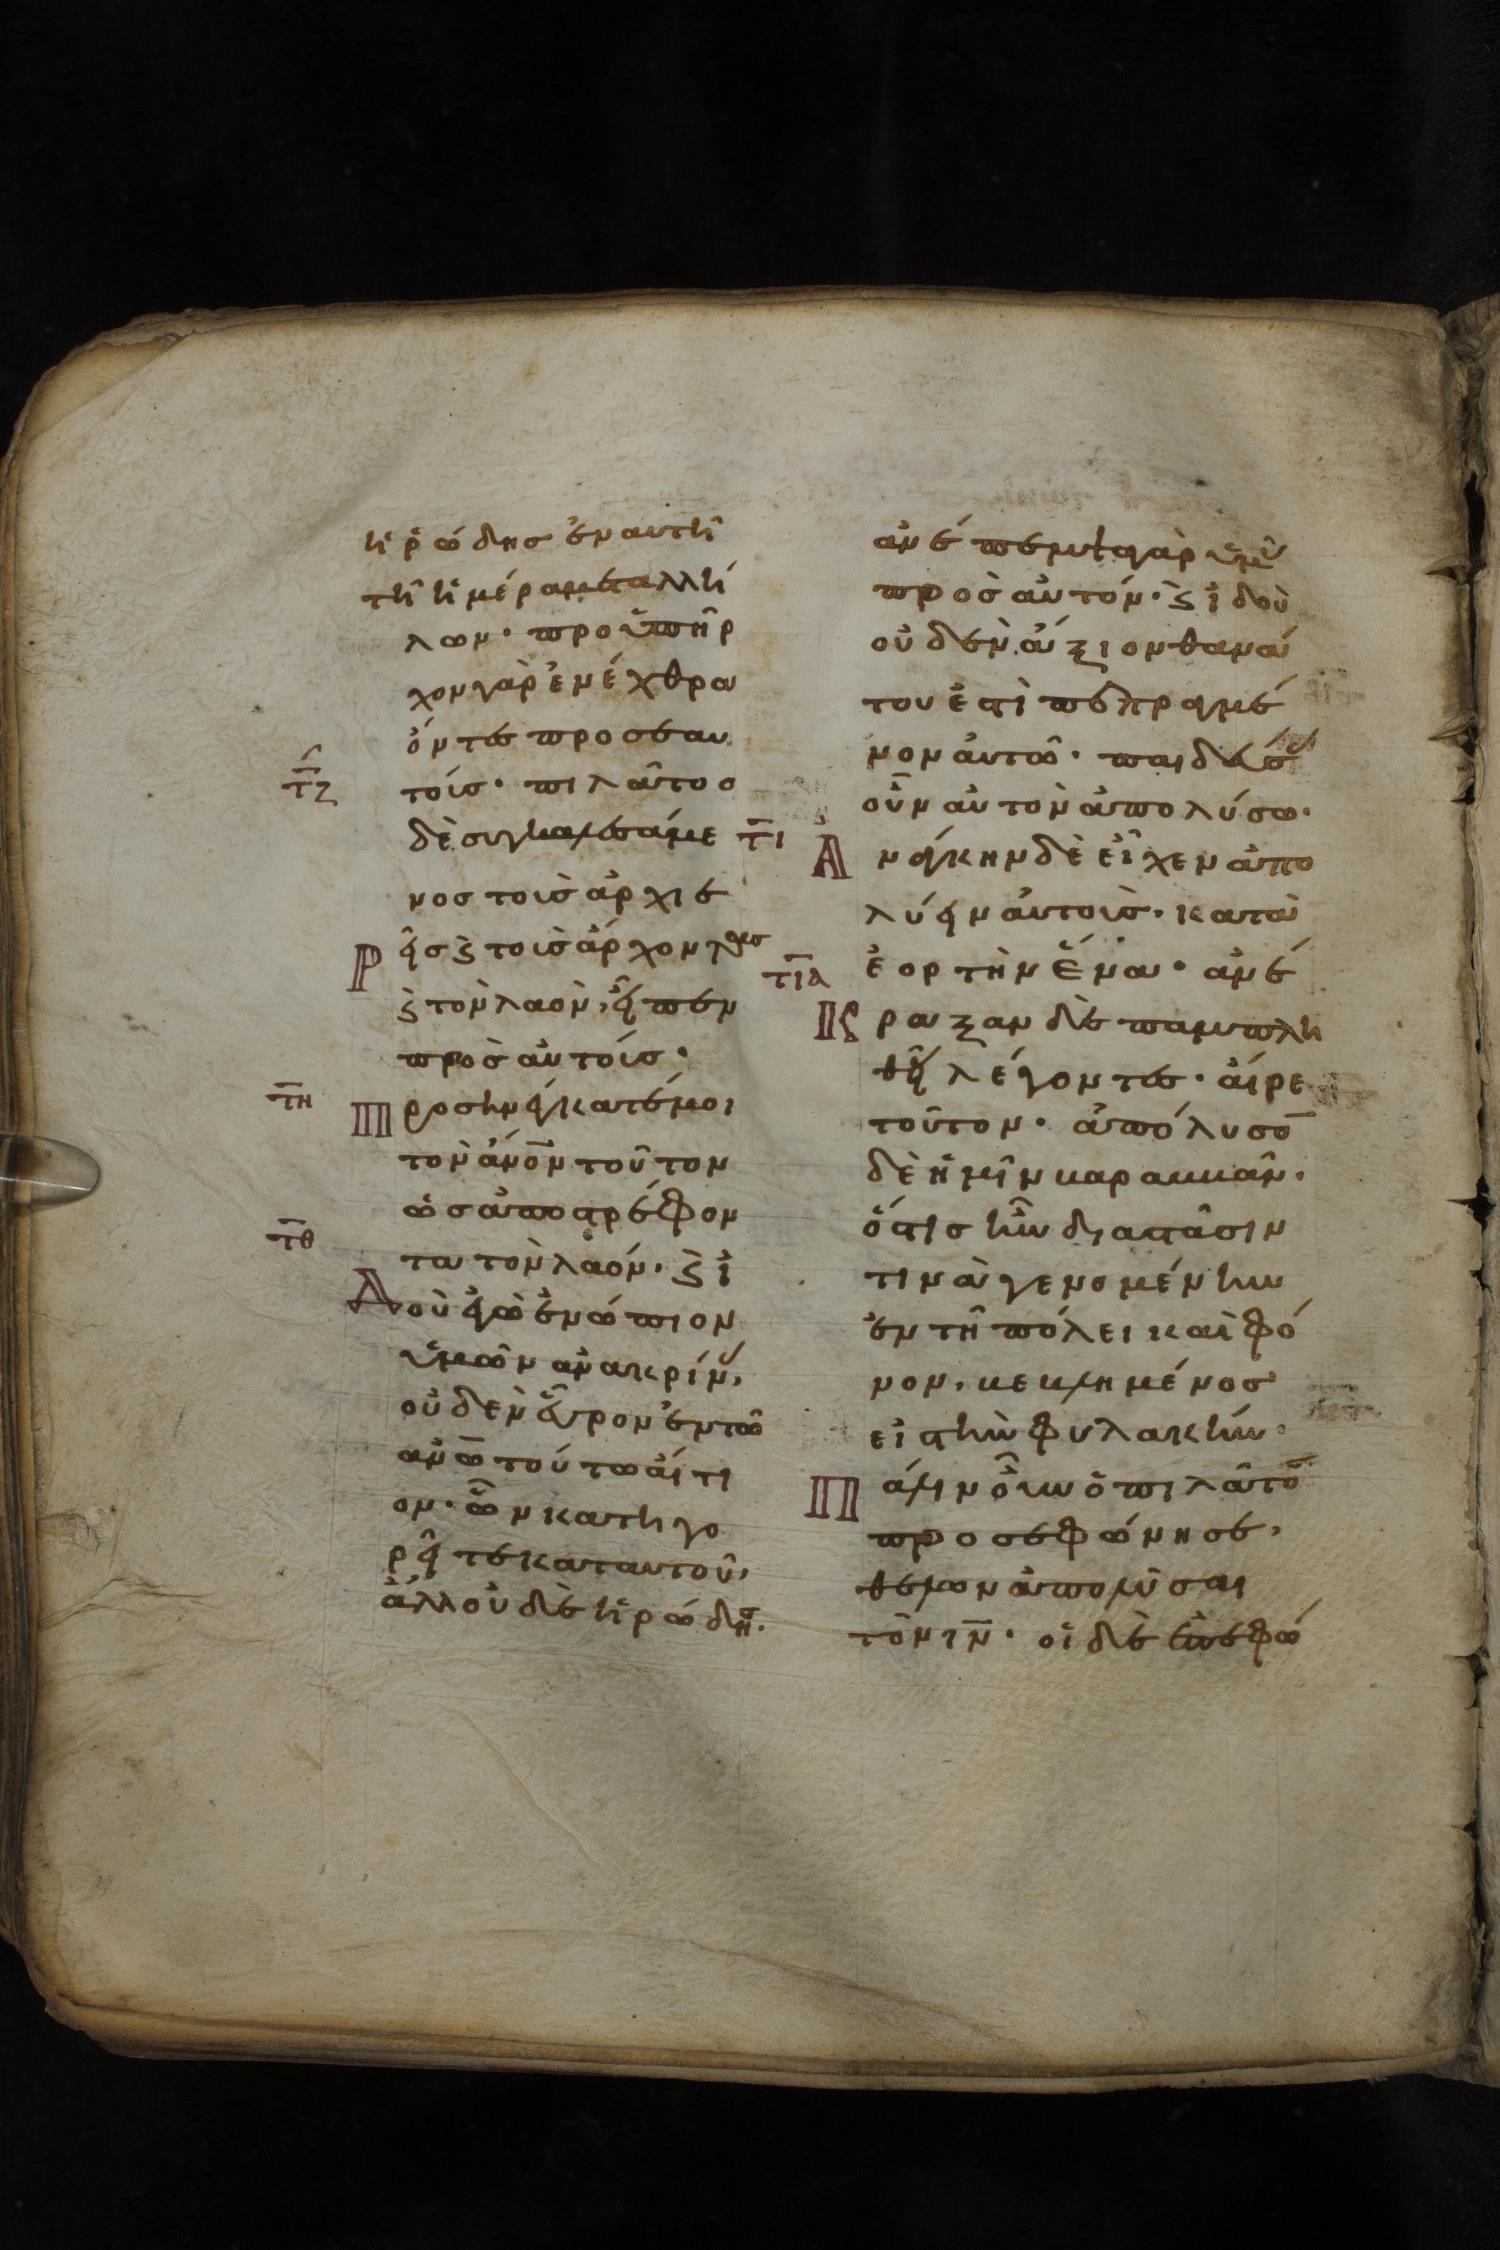 ἡρώδης ἐν αυτῆ
τῆ ἡμέρα μεταλλή
λων· προϋπῆρ
χον γὰρ ἐν ἔχθρα
ὄντες προς εαυ
τ̅ζ
τούς· πιλᾶτος
δὲ συγκαλεσάμε
νος τοὺς ἀρχιε
ρεῖς ϗ τοὺς ἄρχοντας
ϗ τὸν λαὸν, εἶπεν
πρὸς αὐτούς·
τ̅η
Προσηνέγκατέ μοι
τὸν ἄν̅ο̅ν τοῦτον
ὡς ἀποστρέφον
τ̅θ
τα τὸν λαόν· ϗ ἰ
Δοὺ ἐγὼ ἐνώπιον
ὑμῶν ανακρίνας,
οὐδὲν εὗρον ἐν τῶ
αν̅ω̅ τούτω αἴτι
ον· ὧν κατηγο
ρεῖτε κατ αυτοῦ,
ἀλλ οὐδὲ ἡρώδης.
ανέπεμψα γὰρ ὑμᾶς
πρὸς αὐτόν· ϗ ἰδοὺ
οὐδὲν ἄξιον θανά
του ἐστὶ πεπραγμέ
νον ἀυτῶ· παιδεύσας
οὖν αὐτὸν ἀπολύσω·
τ̅ι
Ἀνάγκην δὲ εἶχεν ἀπο
λύειν ἀυτοὶς· κατὰ
ἑορτὴν ἕνα· ἀνέ
τ̅ι̅α
Κραξαν δὲ παμπλη
θεὶ λέγοντες· αἶρε
τοῦτον· ἀπόλυσο̅
δὲ ἡμῖν βαραββᾶν·
ὅστις ἦν δια στᾶσιν
τινὰ γενομένην
ἐν τῆ πόλει καὶ φό
νον, βεβλημένος
εἰς τὴν φυλακήν·
Πάλιν οὖν ὁ πιλᾶτος
προσεφώνησε,
θέλων ἀπολῦσαι
τὸν ι̅ν̅· οἱ δὲ ἐπεφώ